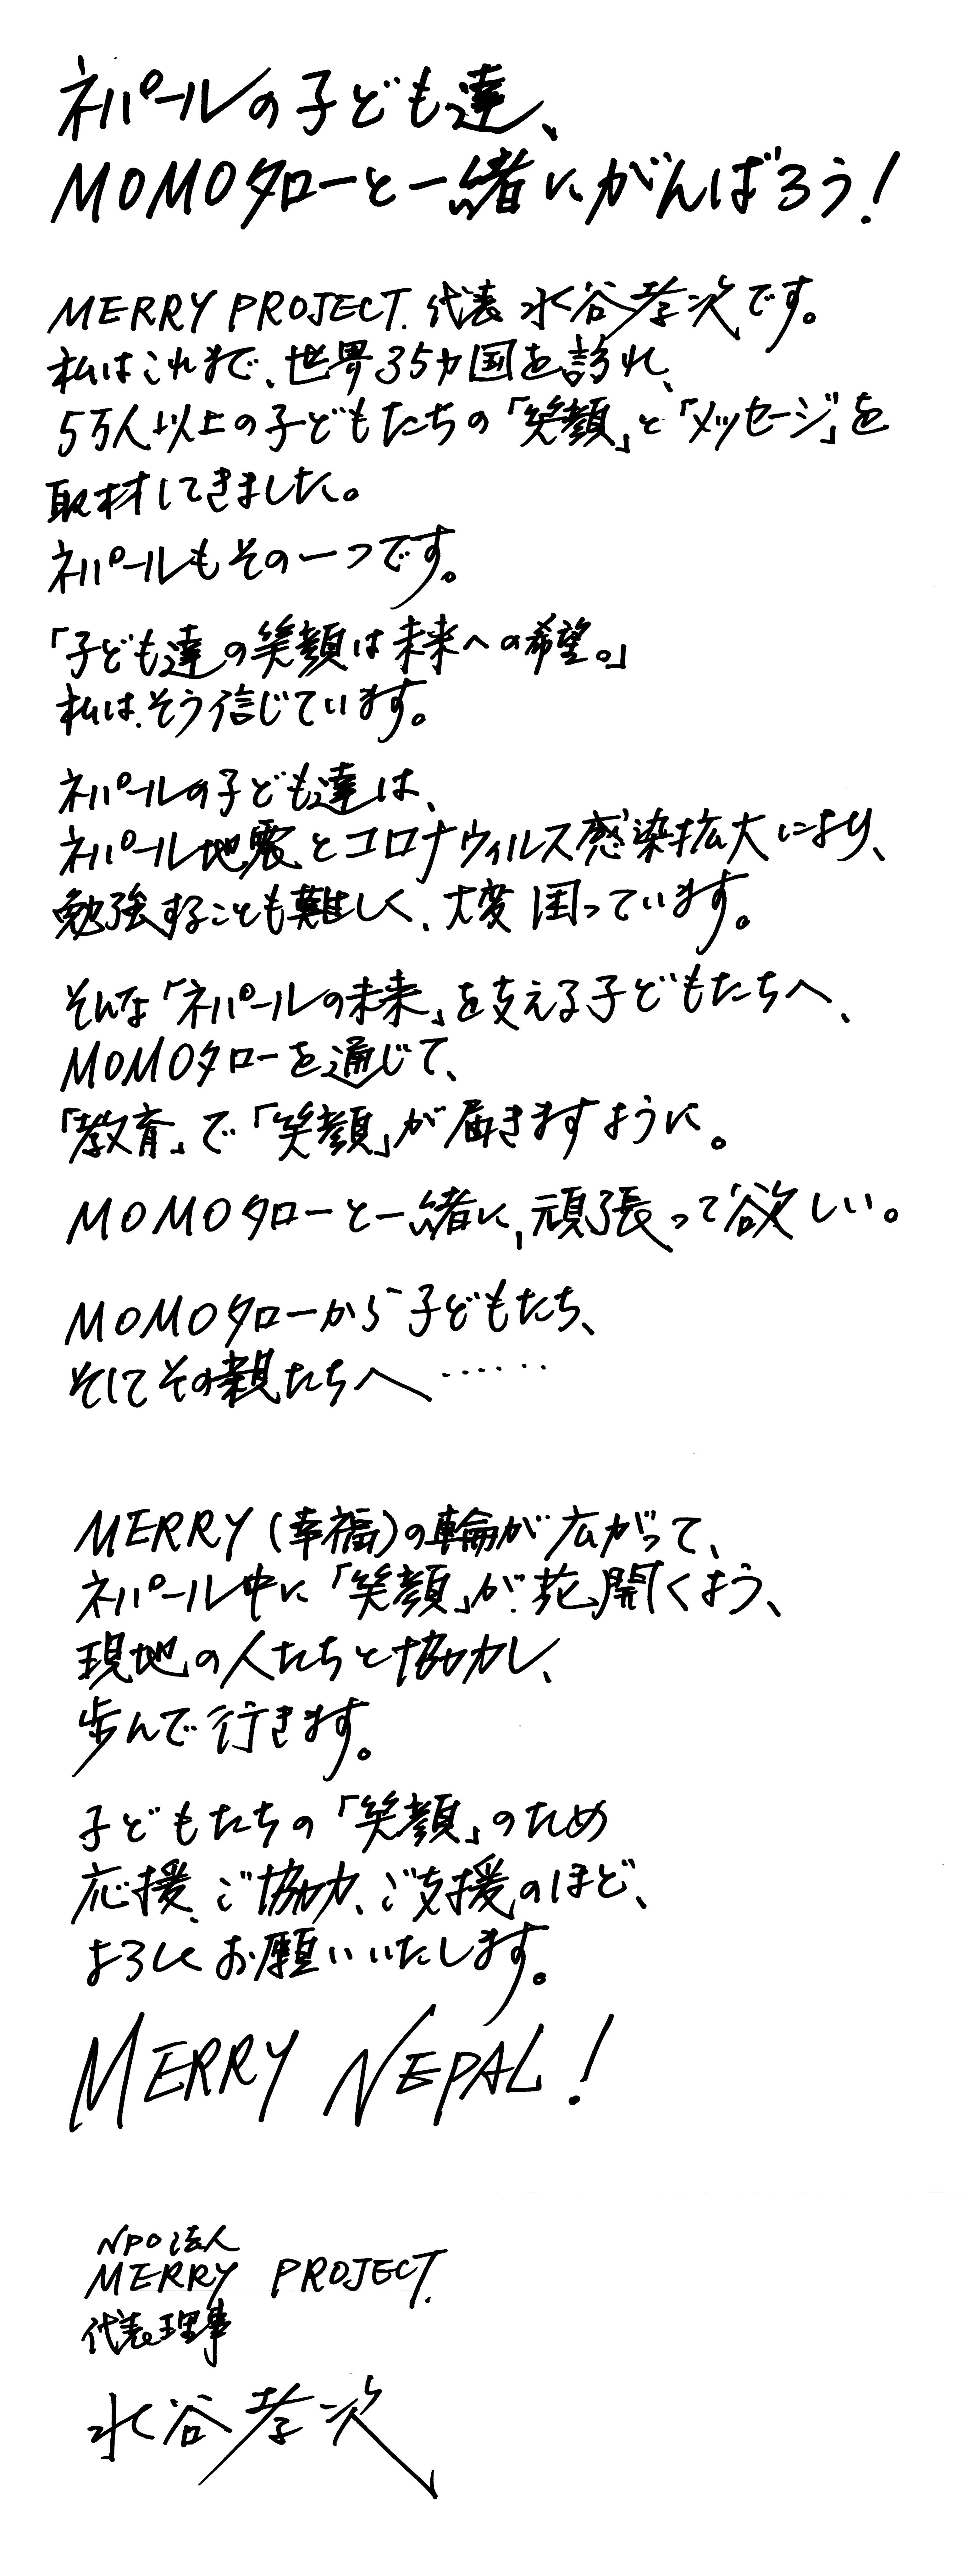 ネパールの子ども達、
MOMOタローと一緒にがんばろう！
MERRY PROJECT. 代表 水谷孝次です。
私はこれまで、世界35カ国を訪れ、
5万人以上の子どもたちの「笑顔」と「メッセージ」を
取材してきました。
ネパールもその一つです。
「子ども達の笑顔は未来への希望。」
私は、そう信じています。
ネパールの子ども達は、
ネパール地震とコロナウィルス感染拡大により、
勉強することも難しく、大変困っています。
そんな「ネパールの未来」を支える子どもたちへ、
MOMOタローを通じて、
「教育」で「笑顔」が届きますように。
MOMOタローと一緒に、頑張って欲しい。
MOMOタローから子どもたち、
そしてその親たちへ……
MERRY（幸福）の輪が広がって、
ネパール中に「笑顔」が花開くよう、
現地の人たちと協力し、
歩んで行きます。
子どもたちの「笑顔」のため
応援、ご協力、ご支援のほど、
よろしくお願いいたします。
MERRY NEPAL！
NPO法人
MERRY PROJECT.
代表理事
水谷孝次